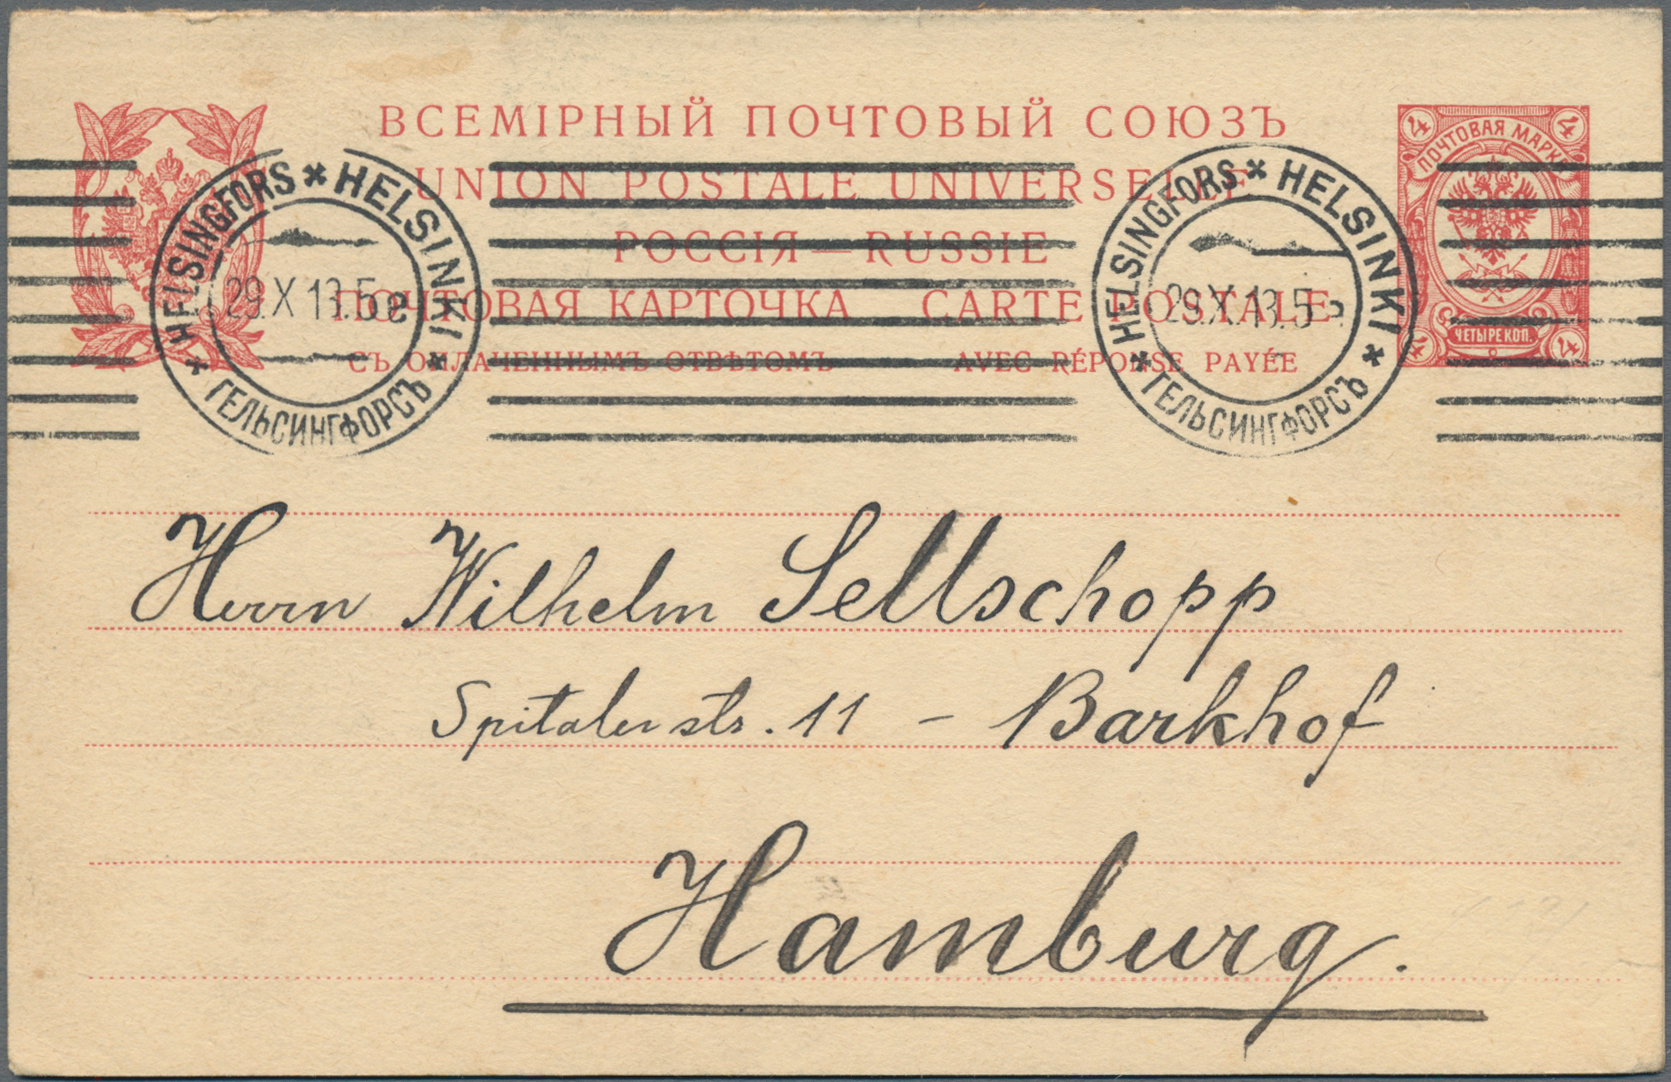 ВСЕМІРНЫЙ ПОЧТОВЫЙ СОЮЗЪ
UNION POSTALE UNIVERSELLE
РОССІЯ — RUSSIE
ПОЧТОВАЯ КАРТОЧКА CARTE POSTALE
СЪ ОПЛАЧЕННЫМЪ ОТВѢТОМЪ AVEC RÉPONSE PAYÉE
4 4
ПОЧТОВАЯ МАРКА
ЧЕТЫРЕ КОП.
4 4
HELSINGFORS * HELSINKI
29.X.13.5 e
* ГЕЛЬСИНГФОРСЪ *
HELSINGFORS * HELSINKI
29.X.13.5
* ГЕЛЬСИНГФОРСЪ *
Herrn Wilhelm Sellschopp
Spitalerstr. 11 - Barkhof
Hamburg.